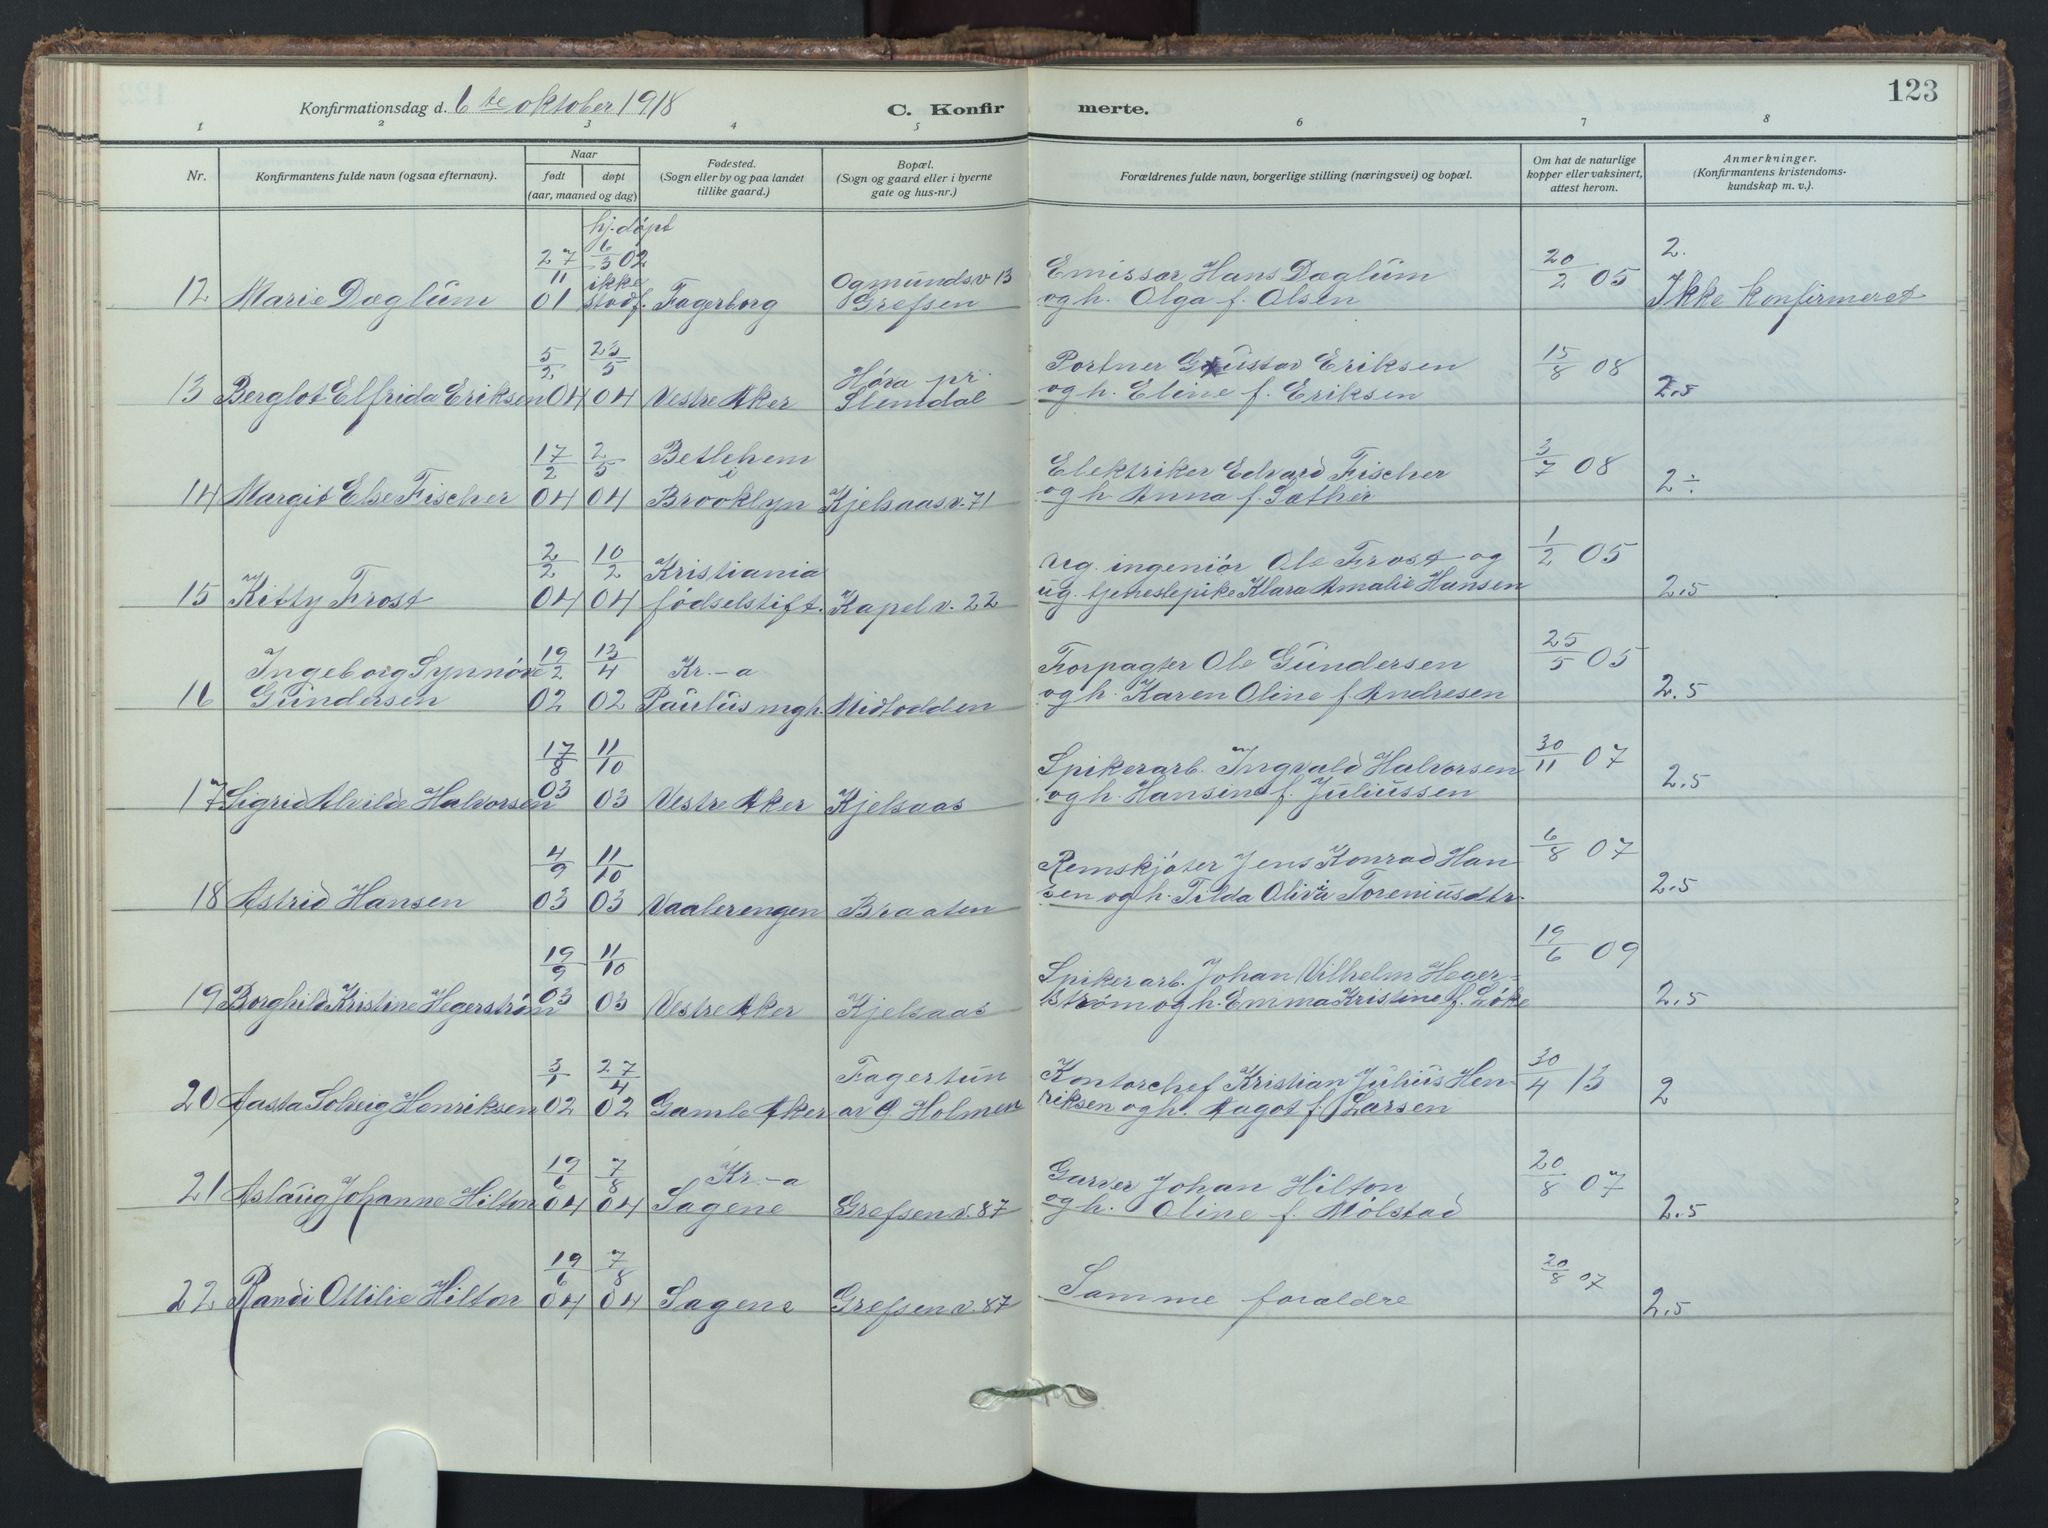 Konfirmationsdag d. 6te oktober 1918
C. Konfirmerte.
123
1 2 3 4 5 6 7 8
Nr.
Konfirmantens fulde navn (ogsaa efternavn).
Naar
født døpt
(aar, maaned og dag)
Fødested.
(Sogn eller by og paa landet
tillike gaard.)
Bopæl.
(Sogn og gaard eller i byerne
gate og hus-nr.)
Forældrenes fulde navn, borgerlige stilling (næringsvei) og bopæl.
Om hat de naturlige
kopper eller vaksinert,
attest herom.
Anmerkninger.
(Konfirmantens kristendoms-
kundskap m. v.)
hj. døpt
27/11 6/3 02 Ogmundsv 13 Emissær Hans Dæglum 20/2 05 2.
ikke
12 Marie Dæglum 01 stadf. Fagerborg Grefsen og h. Olga f. Olsen Ikke konfirmeret
5/2 23/5 Høra pr. Portner Gustav Eriksen 15/8 08
13 Berglot Elfrida Eriksen 04 04 Vestre Aker Slemdal og h. Eline f. Eriksen 2.5
17/2 2/5 Betlehem i Elektriker Edvard Fischer 3/7 08
14 Margit Else Fischer 04 04 Brooklyn Kjelsaasv. 71 og h. Anna f. Sæther 2÷
2/2 10/2 Kristiania ug. ingeniør Ole Frost og 1/2 05
15 Kitty Frost 04 04 fødselstift. Kapelv. 22 ug. tjenestepike Klara Amalie Hansen 2.5
Ingeborg Synnøve 19/2 13/4 Kr.-a Forpagter Ole Gundersen 25/5 05
16 Gundersen 02 02 Paulus mgh. Midtodden og h. Karen Oline f. Andresen 2.5
17/8 11/10 Spikerarb. Ingvald Halvorsen 30/11 07
17 Sigrid Alvilde Halvorsen 03 03 Vestre Aker Kjelsaas og h. Hansine f. Juliussen 2.5
4/9 11/10 Remskjøter Jens Konrad Han 6/8 07
18 Astrid Hansen 03 03 Vaalerengen Braaten sen og h. Tilda Olivia Toreniusdtr. 2.5
19/9 11/10 Spikerarb. Johan Vilhelm Heger- 19/6 09
19 Borghild Kristine Hegerstrøm 03 03 Vestre Aker Kjelsaas strøm og h. Emma Kristine f. Løke 2.5
3/1 27/4 Fagertun Kontorchef Kristian Julius Hen- 30/4 13
20 Aasta Solveig Henriksen 02 02 Gamle Aker av G. Holmen riksen og h. Aagot f. Larsen 2
19/6 7/8 Kr.-a Garver Johan Hilton 20/8 07
21 Aslaug Johanne Hilton 04 04 Sagene Grefsenv. 87 og h. Oline f. Mølstad 2.5
19/6 7/8 Samme forældre 20/8 07
22 Randi Ottilie Hilton 04 04 Sagene Grefsenv. 87 2.5